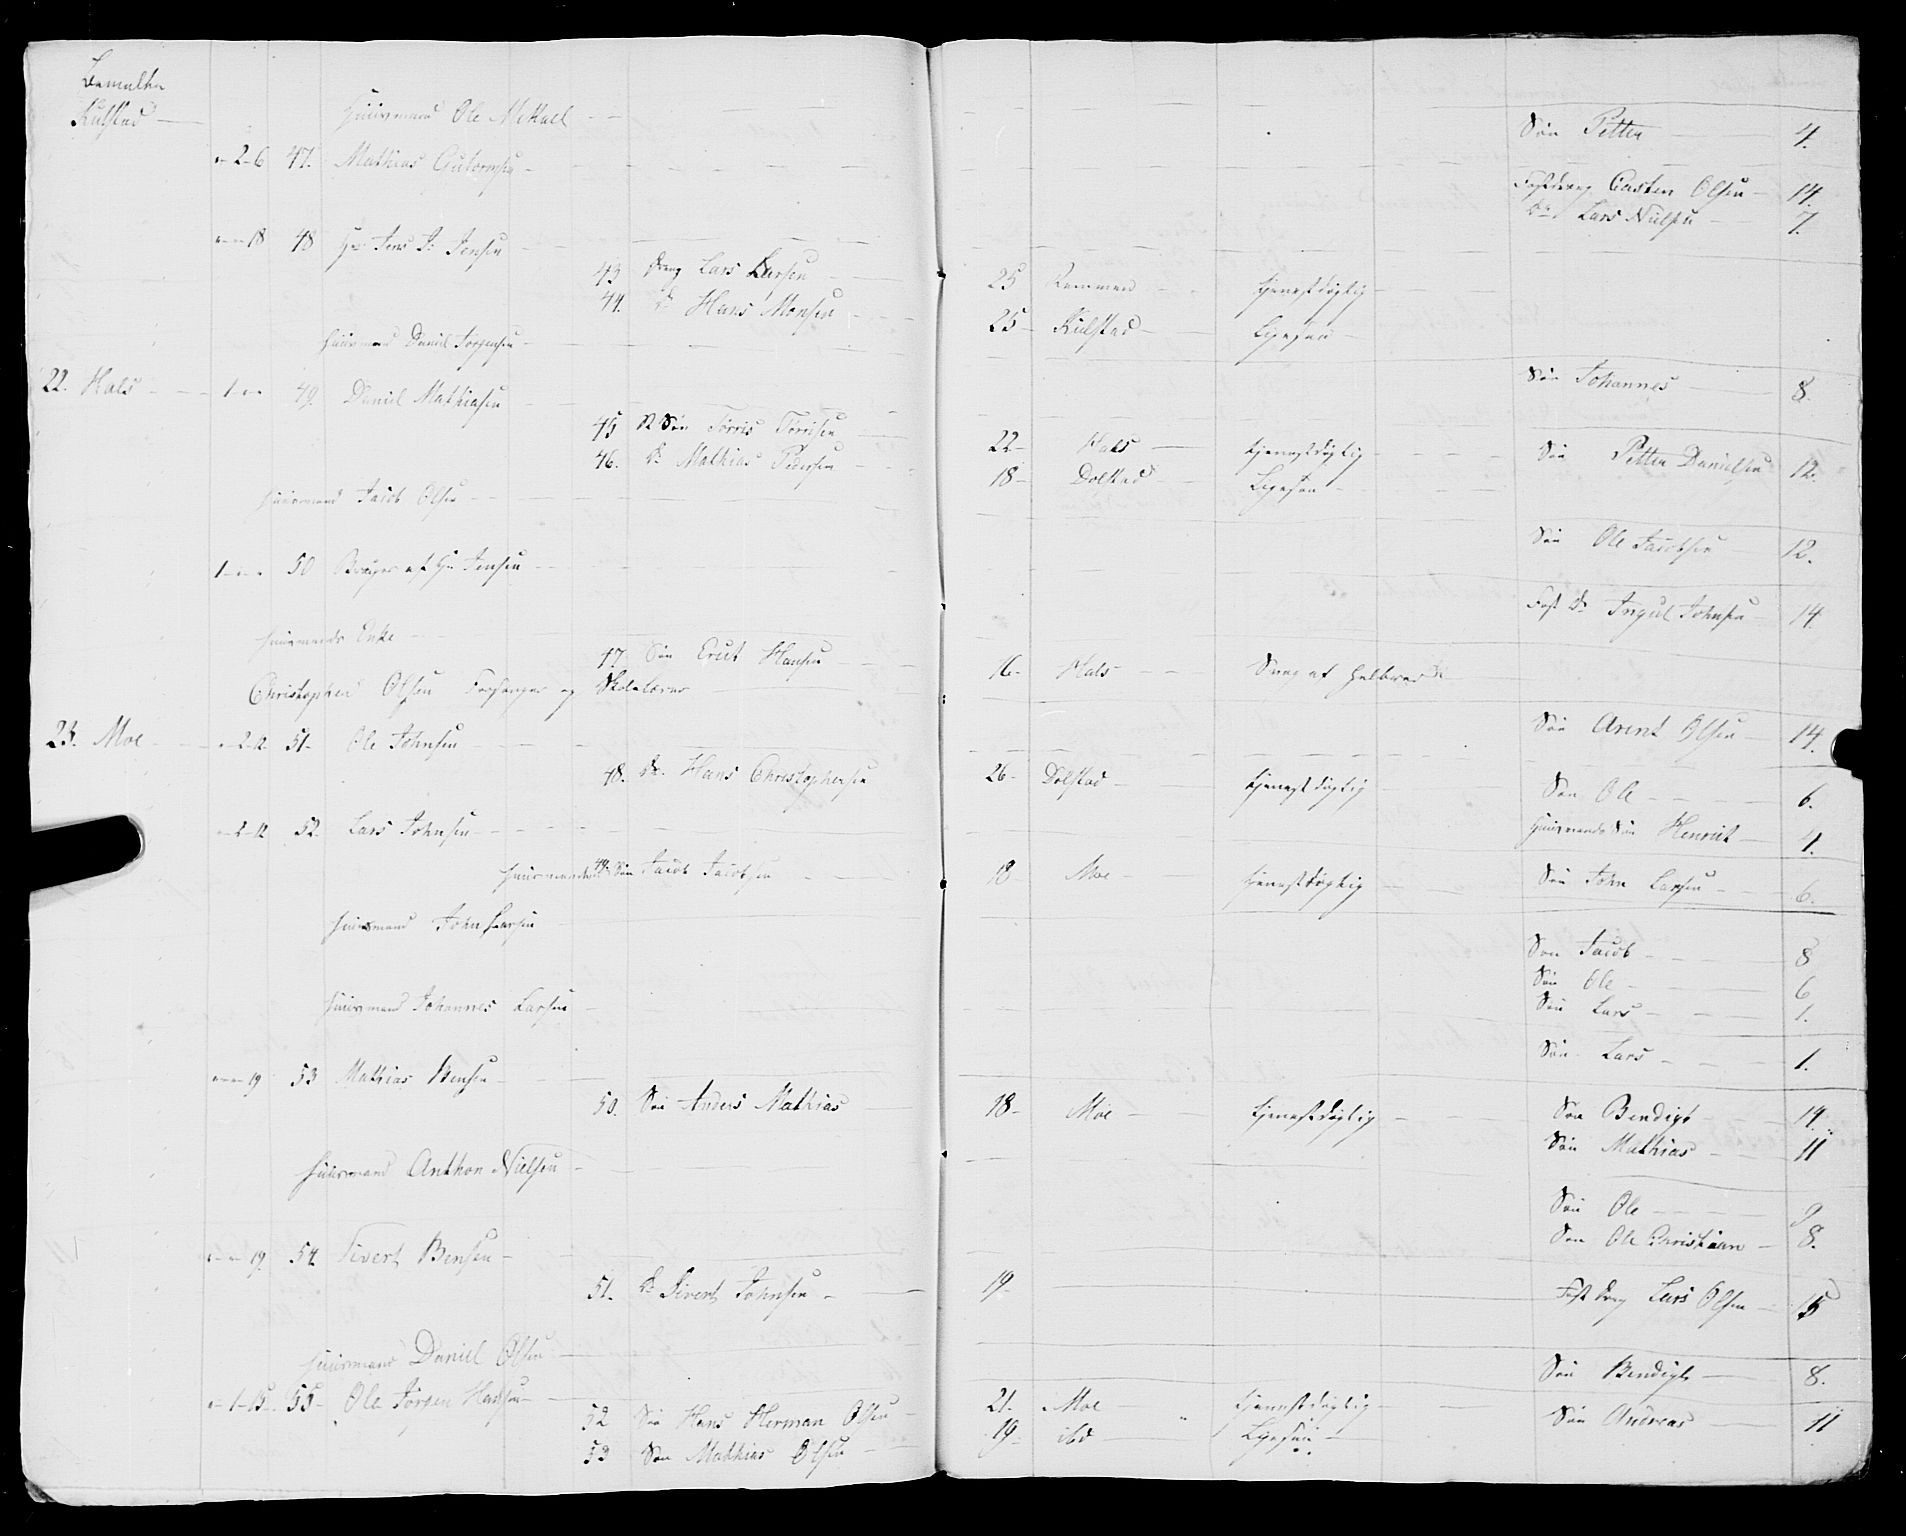 Bemelte
Kulstad —
Huusmand Ole Mikkael — Søn Petter — 4.
„ 2 - 6 47. Mathias Gutormsen — Fostdreng Carsten Olsen — 14.
Do Lars Nielsen — 7.
„ „ 18 48 Hr Jens J: Jensen —
43 Dreng Lars Larsen — 25 Remmen — tjenestdygtig
44. Do Hans Monsen — 25 - Kulstad — Ligesaa —
Huusmand Daniel Jørgensen — Søn Johannes — 8.
22. Hals — 1 „ „ 49. Daniel Mathiasen — Søn Petter Danielsen 12.
45 Søn Tørris Tørrisen — 22 - Hals — tjenestdygtig
46. Do Mathias Pedersen — 18 - Dolstad — Ligesaa —
Huusmand Jacob Olsen — Søn Ole Jacobsen — 12.
1 „ „ 50 Bruges af Hr Jensen — Fost Dr Ingul Johnsen — 14.
Huusmands Enke —
47 Søn Erut Hansen — 16 - Hals — Svag af Helbred
Christopher Olsen Forsanger og Skolelærer —
23. Moe — „ 2 - 12 51 - Ole Johnsen — Søn Arent Olsen — 14.
48. Dr. Hans Christophersen 26 - Dolstad — tjenestdygtig — Søn Ole — 6.
„ 2 - 12 52. Lars Johnsen — Huusmands Søn Henrik — 1.
Huusmands 49. Søn Jacob Jacobsen — 18 - Moe — tjenestdygtig — Søn John Larsen — 6.
Huusmand John Larsen — Søn Jacob — 8
Søn Ole — 6
Søn Lars — 1.
Huusmand Johannes Larsen — Søn Lars — 1.
„ „ 19 53 Mathias Bensen —
50. Søn Anders Mathias — 18 - Moe — tjenestdygtig — Søn Bendigt — 14.
Søn Mathias — 11
Huusmand Anthon Nielsen — Søn Ole — 9
Søn Ole Christian — 8.
„ „ 19. 54 Sivert Bensen —
51. Dr Sivert Johnsen — 19 — Fost dreng Lars Olsen — 15
Huusmand Daniel Olsen — Søn Bendigt — 8.
„ 1 - 15. 55 - Ole Jørgen Hansen —
52 Søn Hans Herman Olsen — 21. Moe „ tjenestdygtig — Søn Andreas — 11
53 Søn Mathias Olsen — 19 - ibd — Ligesaa —